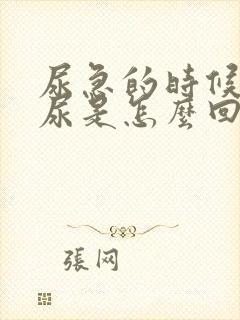 尿急的時候
尿是怎麼回
張网